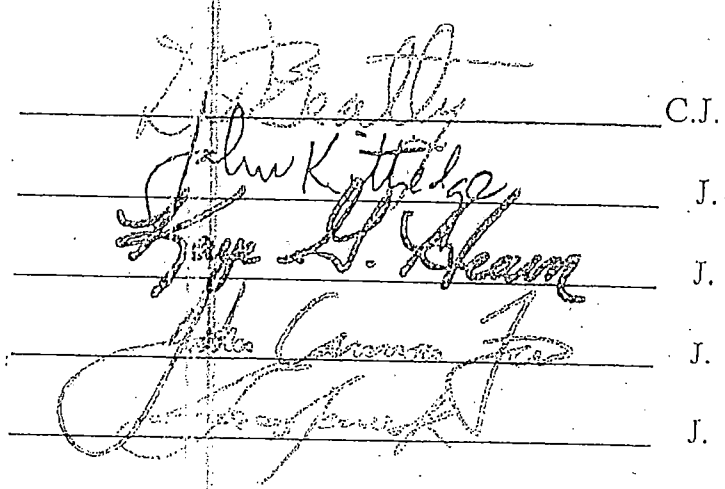 D. W. Beatty C.J.
John Kittredge J.
Kaye G. Hearn J.
John Cannon Few J.
J.